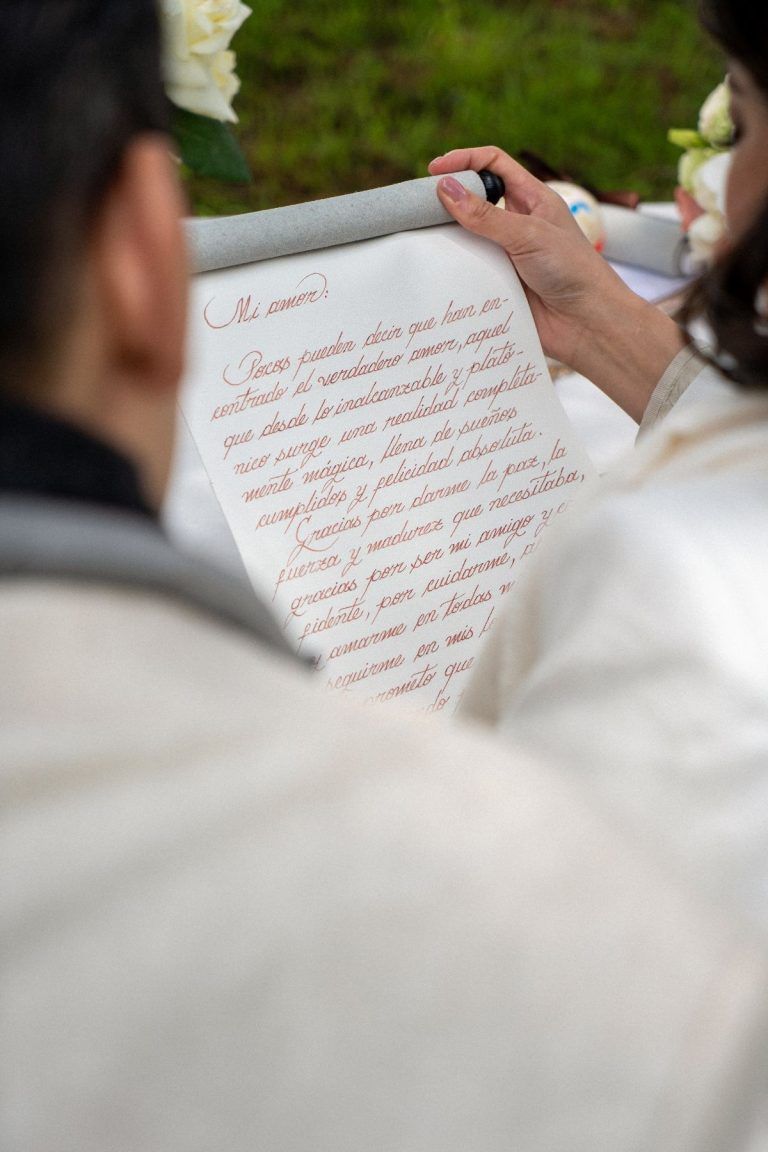 Mi amor:
Pocos pueden decir que han en-
contrado el verdadero amor, aquel
que desde lo inalcanzable y plató-
nico surge una realidad completa-
mente mágica, llena de sueños
cumplidos y felicidad absoluta.
Gracias por darme la paz, la
fuerza y madurez que necesitaba,
gracias por ser mi amigo y
fidente, por cuidarme,
y amarme en todas
seguirme en mis
prometo que